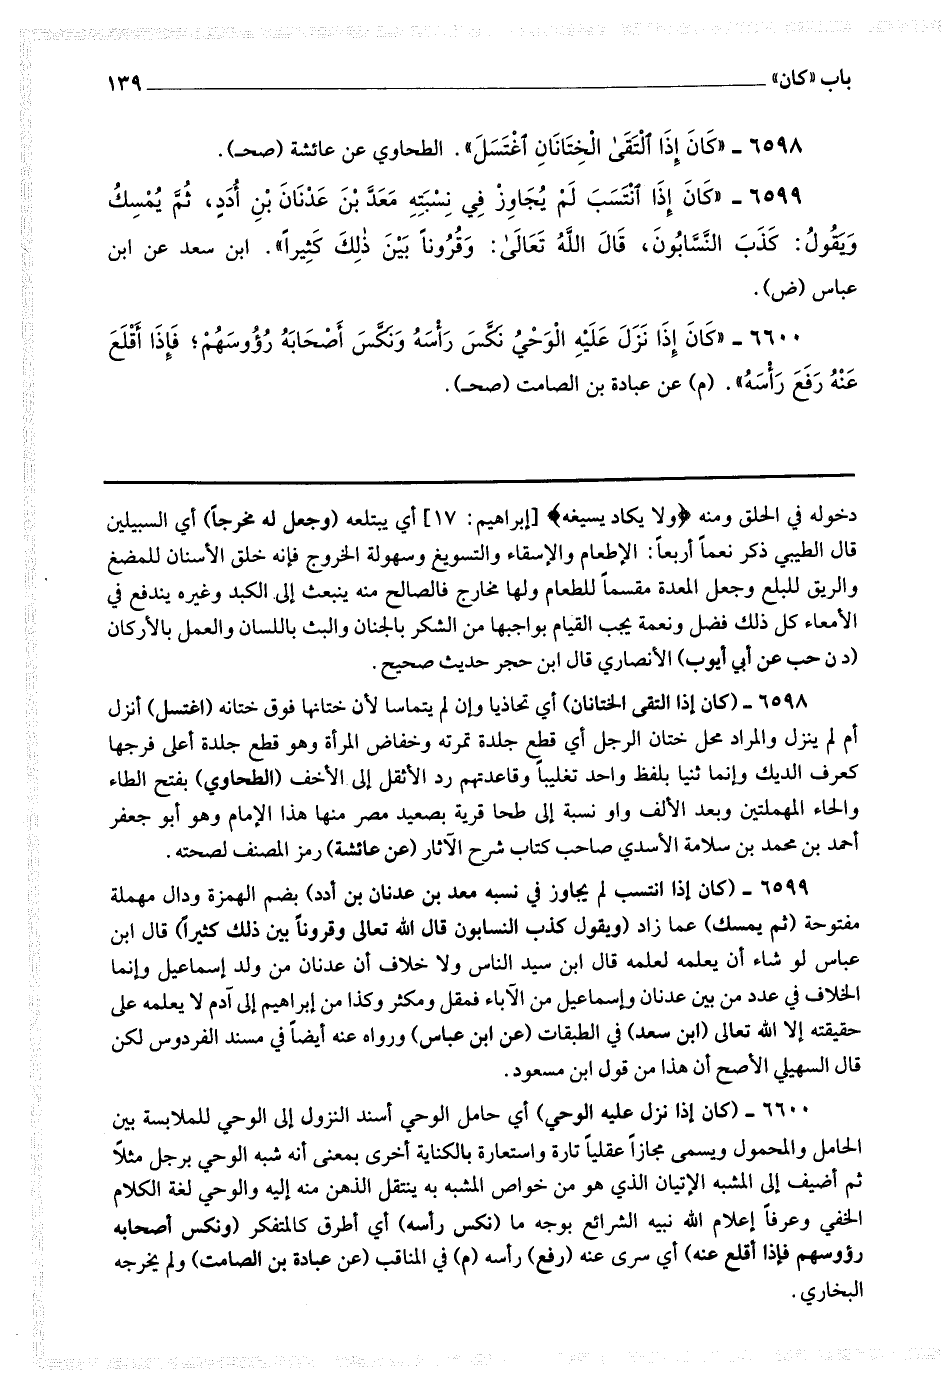 باب «كان» ١٣٩
٦٥٩٨ ـ «كَانَ إِذَا ٱلْتَقَىٰ الْخِتَانَانِ ٱغْتَسَلَ». الطحاوي عن عائشة (صحـ).
٦٥٩٩ ـ «كَانَ إِذَا ٱنْتَسَبَ لَمْ يُجَاوِزْ فِي نِسْبَتِهِ مَعَدَّ بْنَ عَدْنَانَ بْنِ أُدَدٍ، ثُمَّ يُمْسِكُ
وَيَقُولُ: كَذَبَ النَّسَّابُونَ، قَالَ اللَّهُ تَعَالَىٰ: وَقُرُوناً بَيْنَ ذٰلِكَ كَثِيراً». ابن سعد عن ابن
عباس (ض).
٦٦٠٠ ـ «كَانَ إِذَا نَزَلَ عَلَيْهِ الْوَحْيُ نَكَّسَ رَأْسَهُ وَنَكَّسَ أَصْحَابَهُ رُؤُوسَهُمْ؛ فَإِذَا أَقْلَعَ
عَنْهُ رَفَعَ رَأْسَهُ». (م) عن عبادة بن الصامت (صحـ).
دخوله في الحلق ومنه ﴿ولا يكاد يسيغه﴾ [إبراهيم: ١٧] أي يبتلعه (وجعل له مخرجاً) أي السبيلين
قال الطيبي ذكر نعماً أربعاً: الإطعام والإسقاء والتسويغ وسهولة الخروج فإنه خلق الأسنان للمضغ
والريق للبلع وجعل المعدة مقسماً للطعام ولها مخارج فالصالح منه ينبعث إلى الكبد وغيره يندفع في
الأمعاء كل ذلك فضل ونعمة يجب القيام بواجبها من الشكر بالجنان والبث باللسان والعمل بالأركان
(د ن حب عن أبي أيوب) الأنصاري قال ابن حجر حديث صحيح.
٦٥٩٨ ـ (كان إذا التقى الختانان) أي تحاذيا وإن لم يتماسا لأن ختانها فوق ختانه (اغتسل) أنزل
أم لم ينزل والمراد محل ختان الرجل أي قطع جلدة ثمرته وخفاض المرأة وهو قطع جلدة أعلى فرجها
كعرف الديك وإنما ثنيا بلفظ واحد تغليباً وقاعدتهم رد الأثقل إلى الأخف (الطحاوي) بفتح الطاء
والحاء المهملتين وبعد الألف واو نسبة إلى طحا قرية بصعيد مصر منها هذا الإمام وهو أبو جعفر
أحمد بن محمد بن سلامة الأسدي صاحب كتاب شرح الآثار (عن عائشة) رمز المصنف لصحته.
٦٥٩٩ ـ (كان إذا انتسب لم يجاوز في نسبه معد بن عدنان بن أدد) بضم الهمزة ودال مهملة
مفتوحة (ثم يمسك) عما زاد (ويقول كذب النسابون قال الله تعالى وقروناً بين ذلك كثيراً) قال ابن
عباس لو شاء أن يعلمه لعلمه قال ابن سيد الناس ولا خلاف أن عدنان من ولد إسماعيل وإنما
الخلاف في عدد من بين عدنان وإسماعيل من الآباء فمقل ومكثر وكذا من إبراهيم إلى آدم لا يعلمه على
حقيقته إلا الله تعالى (ابن سعد) في الطبقات (عن ابن عباس) ورواه عنه أيضاً في مسند الفردوس لكن
قال السهيلي الأصح أن هذا من قول ابن مسعود.
٦٦٠٠ ـ (كان إذا نزل عليه الوحي) أي حامل الوحي أسند النزول إلى الوحي للملابسة بين
الحامل والمحمول ويسمى مجازاً عقلياً تارة واستعارة بالكناية أخرى بمعنى أنه شبه الوحي برجل مثلاً
ثم أضيف إلى المشبه الإتيان الذي هو من خواص المشبه به ينتقل الذهن منه إليه والوحي لغة الكلام
الخفي وعرفاً إعلام الله نبيه الشرائع بوجه ما (نكس رأسه) أي أطرق كالمتفكر (ونكس أصحابه
رؤوسهم فإذا أقلع عنه) أي سرى عنه (رفع) رأسه (م) في المناقب (عن عبادة بن الصامت) ولم يخرجه
البخاري.